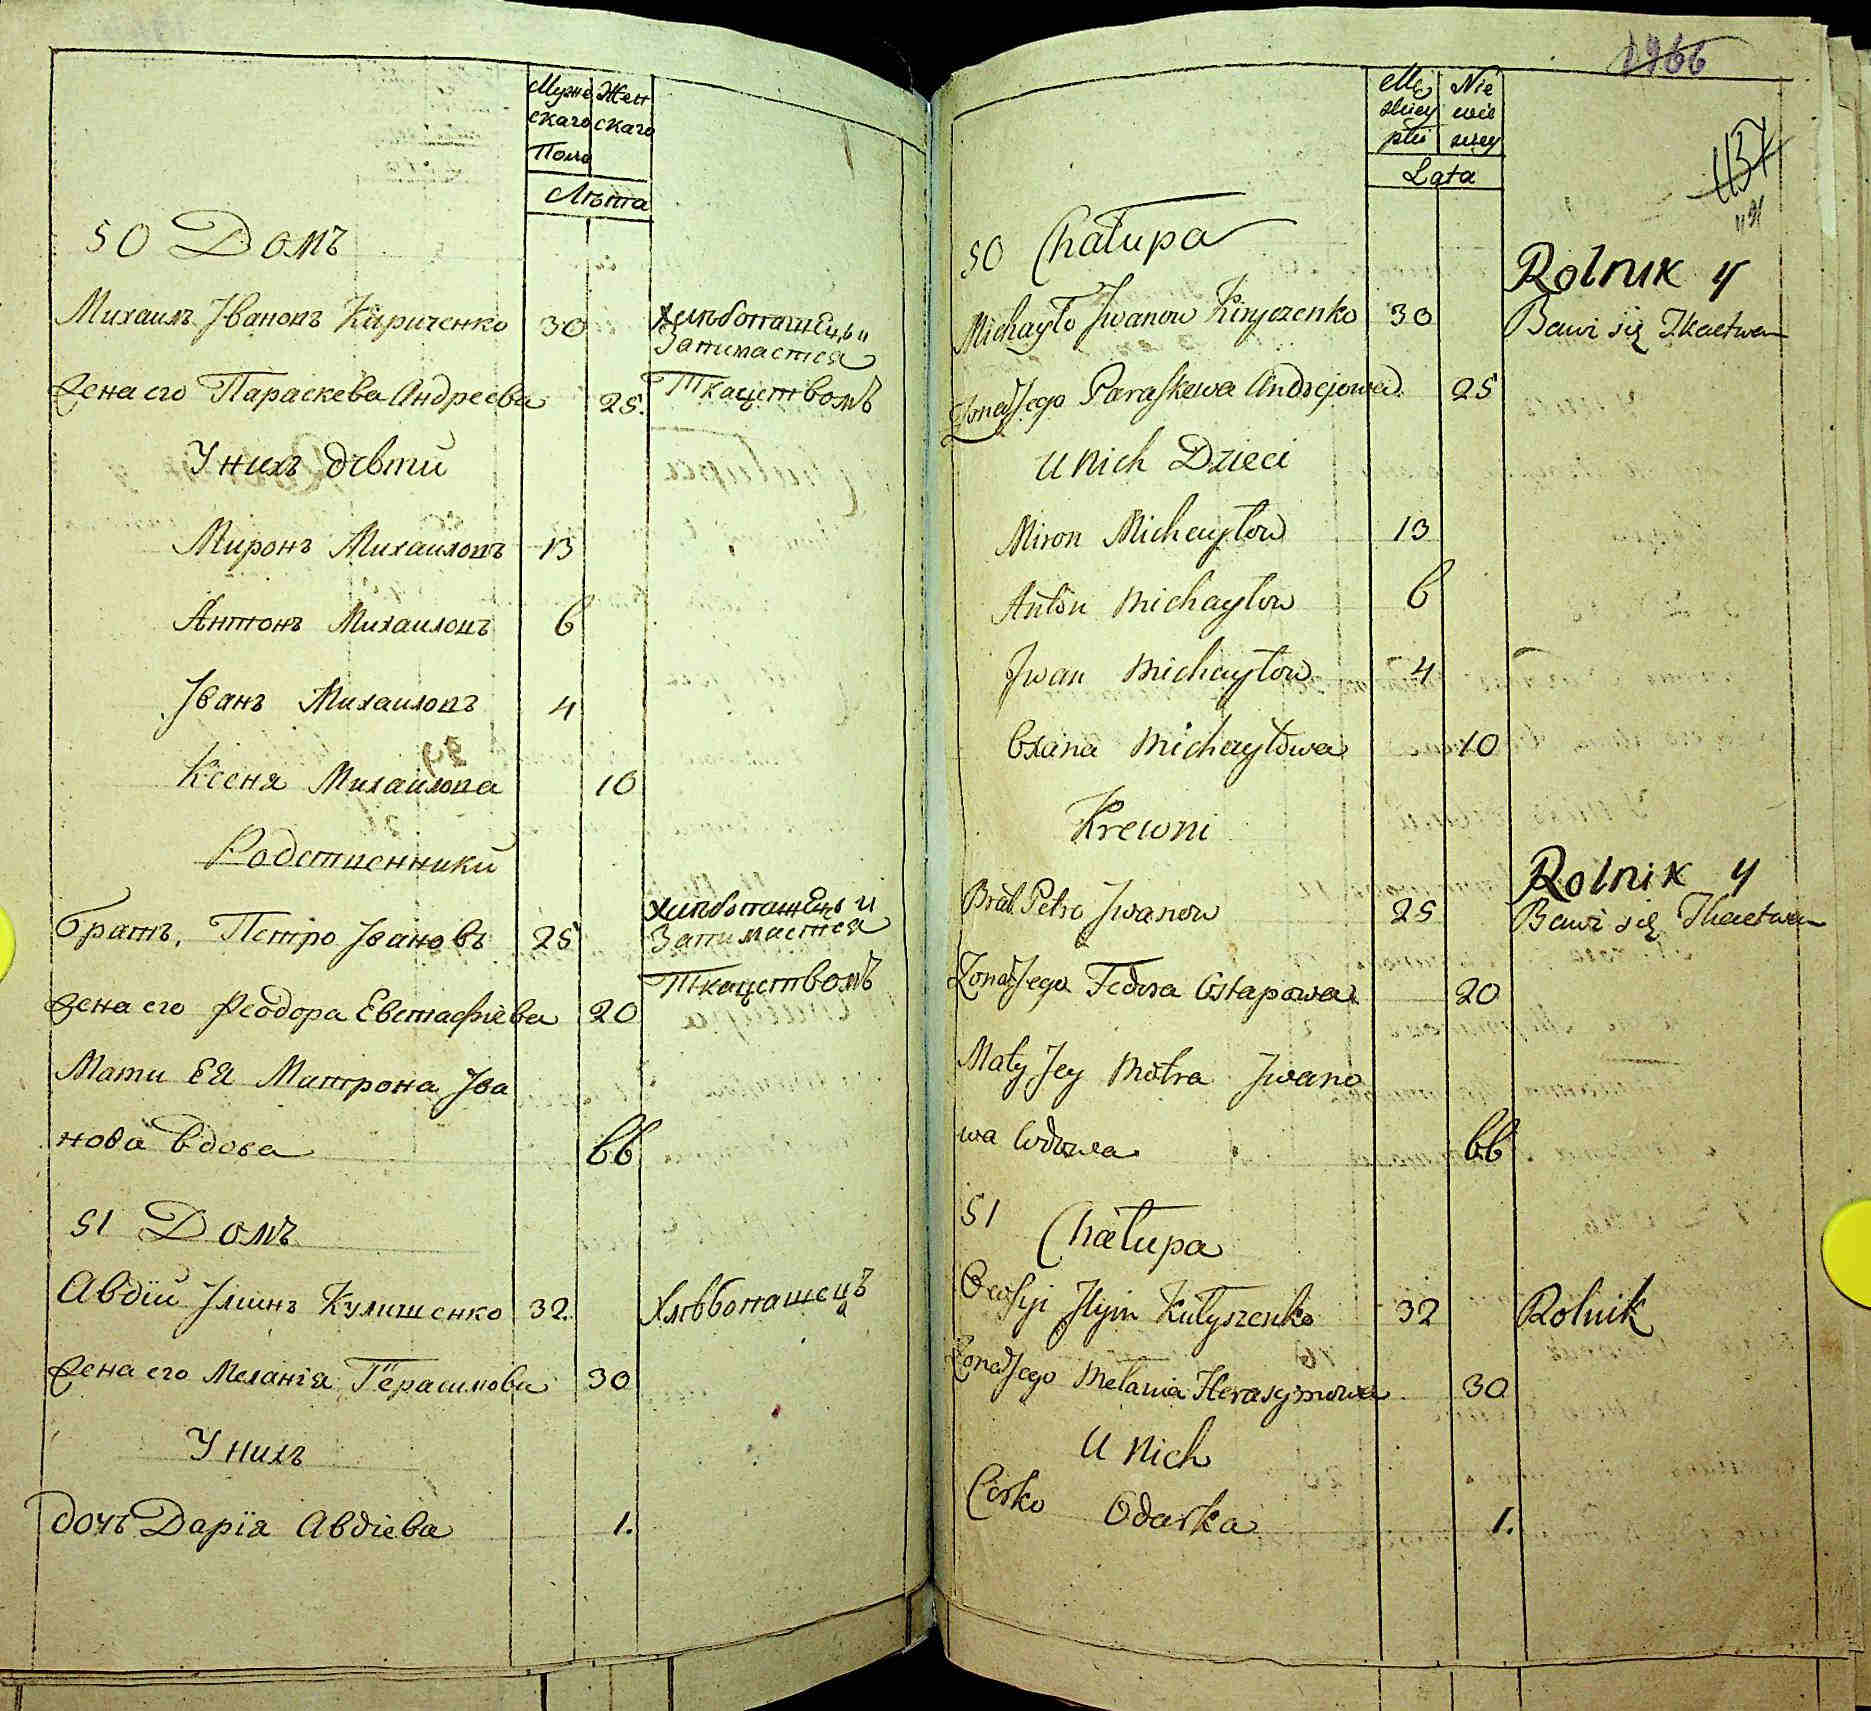 Муже Жен
скаго скаго
Пола
Лѣта
50 Домъ
Михаилъ Јвановъ Кириченко 30 Хлѣбопашецъ и
Занимается
Жена его Параскева Андреева 25. Ткацтвомъ
У нихъ дѣти
Миронъ Михаиловъ 13
Антонъ Михаиловъ 6
Јванъ Михаиловъ 4
Ксеня Михаилова 10
Родственники
братъ, Петро Јвановъ 25 Хлѣбопашецъ и
Занимается
Жена его Феодора Евстафіева 20 Ткацтвомъ
Мати Ея Митрона Јва
нова вдова 66
51 Домъ
Авдій Јлiинъ Кулишенко 32. Хлѣбопашецъ
Жена его Меланія Герасимова 30
У нихъ
дочъ Дарія Авдіева 1.
1966
137
Mę Nie
skiey wie
płci sciey
Lata
50 Chałupa
Rolnik y
Michayło Jwanow Kiryczenko 30 Bawi się Tkactwem
Zona Jego Paraskewa Andrejowa 25
U nich Dzieci
Miron Michayłow 13
Anton Michayłow 6
Jwan Michayłow 4
Oxana Michayłowa 10
Krewni
Rolnik y
Brat Petro Jwanow 25 Bawi się Tkactwem
Zona Jego Fedora Ostapowa 20
Maty Jey Motra Jwano
wa Wdowa 66
51
Chałupa
Owdyi Jlyin Kułyszenko 32 Rolnik
Zona Jego Mełania Herasymowa 30
U nich
Córko Odarka 1.